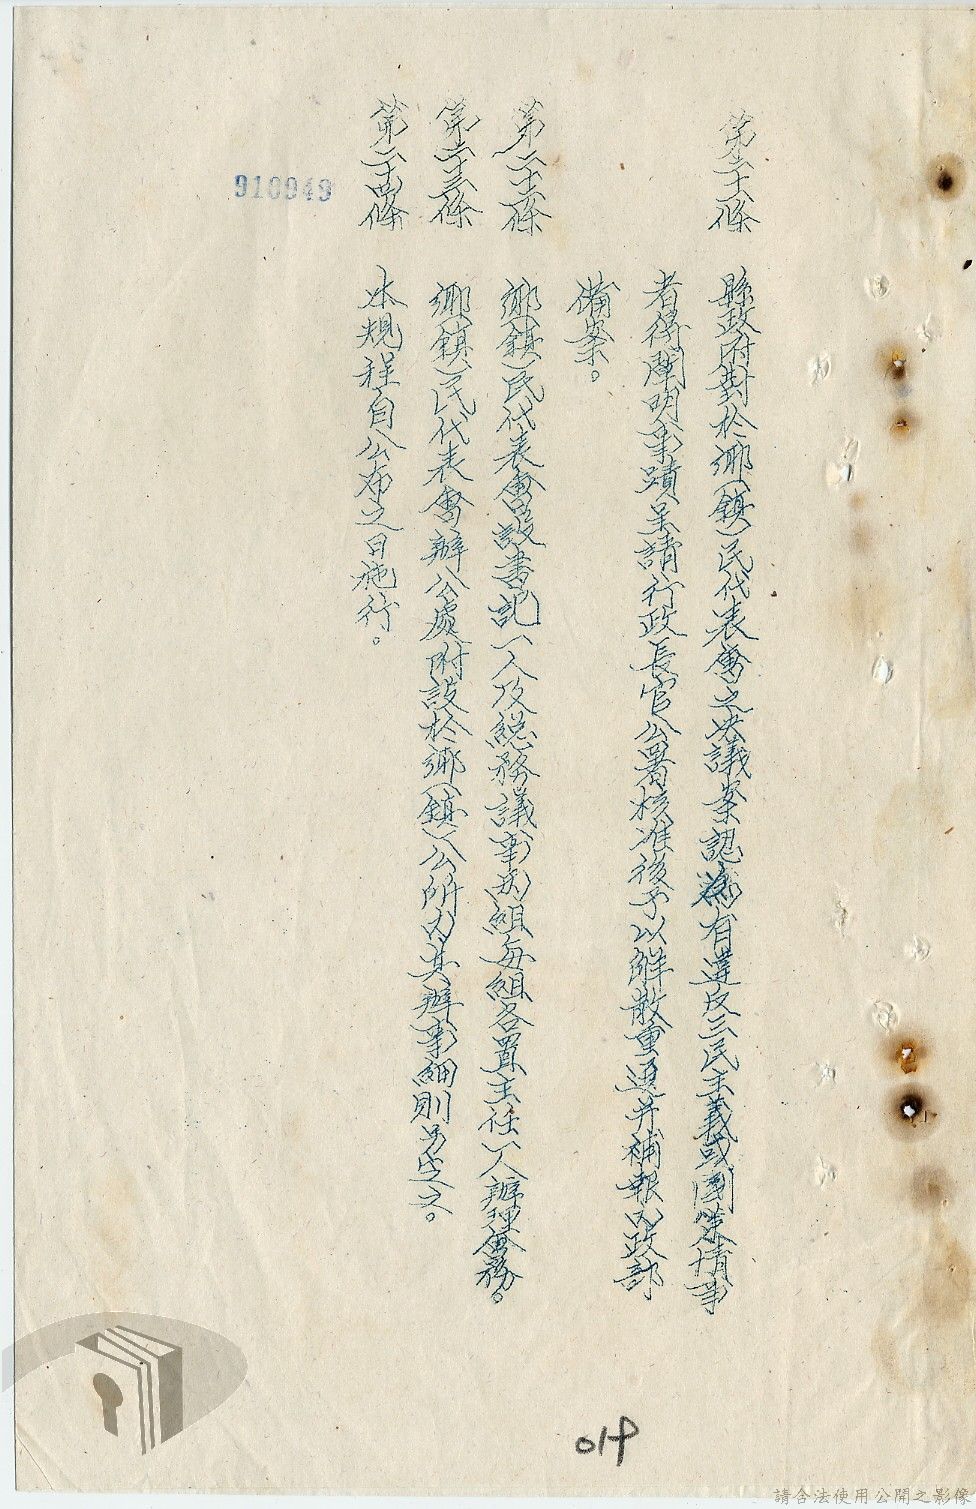 第二十一條　縣政府對於鄉(鎮)民代表會之決議案認為有違反三民主義或國策情事
者得闡明事蹟呈請行政長官公署核准後予以解散重選并補報內政部
備案。
第二十二條　鄉(鎮)民代表會設書記一人及總務議事兩組每組各置主任一人辦理會務。
第二十三條　鄉(鎮)民代表會辦公處附設於鄉(鎮)公所內其辦事細則另定之。
第二十四條　本規程自公布之日施行。
910949
019
請合法使用公開之影像